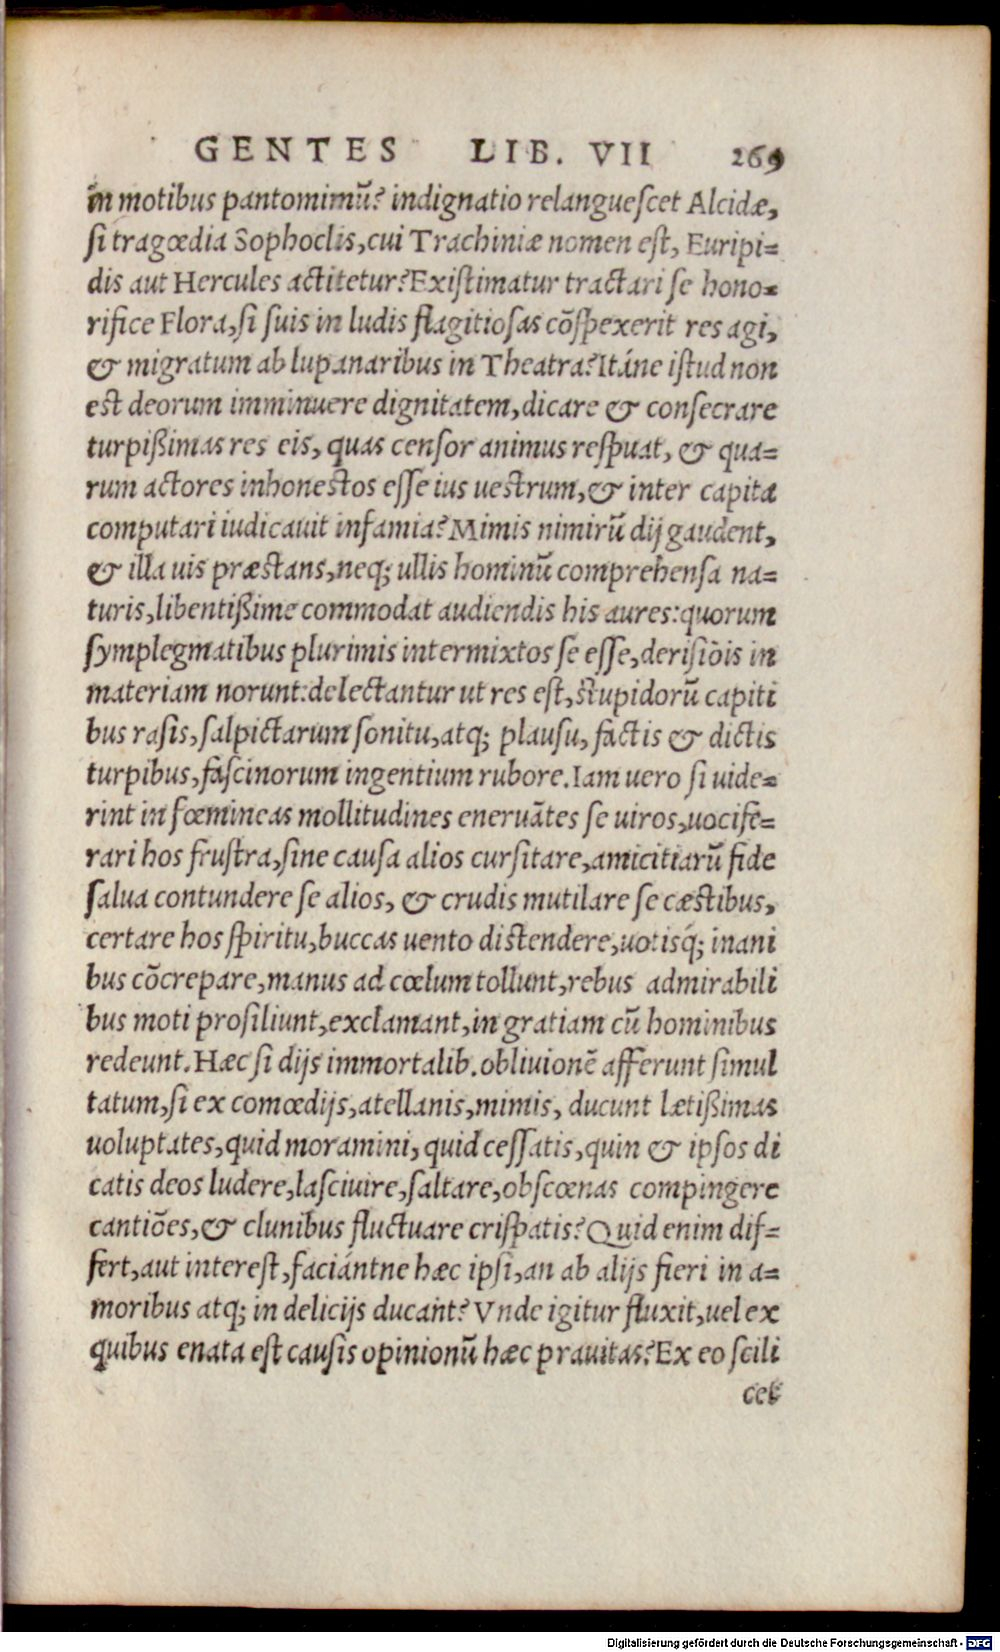 GENTES LIB. VII 269
in motibus pantomimũ? indignatio relanguescet Alcidæ,
si tragœdia Sophoclis, cui Trachiniæ nomen est, Euripi=
dis aut Hercules actitetur? Existimatur tractari se hono=
rifice Flora, si suis in ludis flagitiosas cõspexerit res agi,
& migratum ab lupanaribus in Theatra? Itáne istud non
est deorum imminuere dignitatem, dicare & consecrare
turpißimas res eis, quas censor animus respuat, & qua=
rum actores inhonestos esse ius uestrum, & inter capita
computari iudicauit infamia? Mimis nimirũ dij gaudent,
& illa uis præstans, neq; ullis hominũ comprehensa na=
turis, libentißime commodat audiendis his aures: quorum
symplegmatibus plurimis intermixtos se esse, derisiõis in
materiam norunt: delectantur ut res est, stupidorũ capiti
bus rasis, salpictarum sonitu, atq; plausu, factis & dictis
turpibus, fascinorum ingentium rubore. Iam uero si uide=
rint in fœmineas mollitudines eneruãtes se uiros, uocife=
rari hos frustra, sine causa alios cursitare, amicitiarũ fide
salua contundere se alios, & crudis mutilare se cæstibus,
certare hos spiritu, buccas uento distendere, uotisq́; inani
bus cõcrepare, manus ad cœlum tollunt, rebus admirabili
bus moti prosiliunt, exclamant, in gratiam cũ hominibus
redeunt. Hæc si dijs immortalib. obliuionẽ afferunt simul
tatum, si ex comœdijs, atellanis, mimis, ducunt lætißimas
uoluptates, quid moramini, quid cessatis, quin & ipsos di
catis deos ludere, lasciuire, saltare, obscœnas compingere
cantiões, & clunibus fluctuare crispatis? Quid enim dif=
fert, aut interest, faciántne hæc ipsi, an ab alijs fieri in a=
moribus atq; in delicijs ducant? Vnde igitur fluxit, uel ex
quibus enata est causis opinionũ hæc prauitas? Ex eo scili
cet
Digitalisierung gefördert durch die Deutsche Forschungsgemeinschaft - DFG